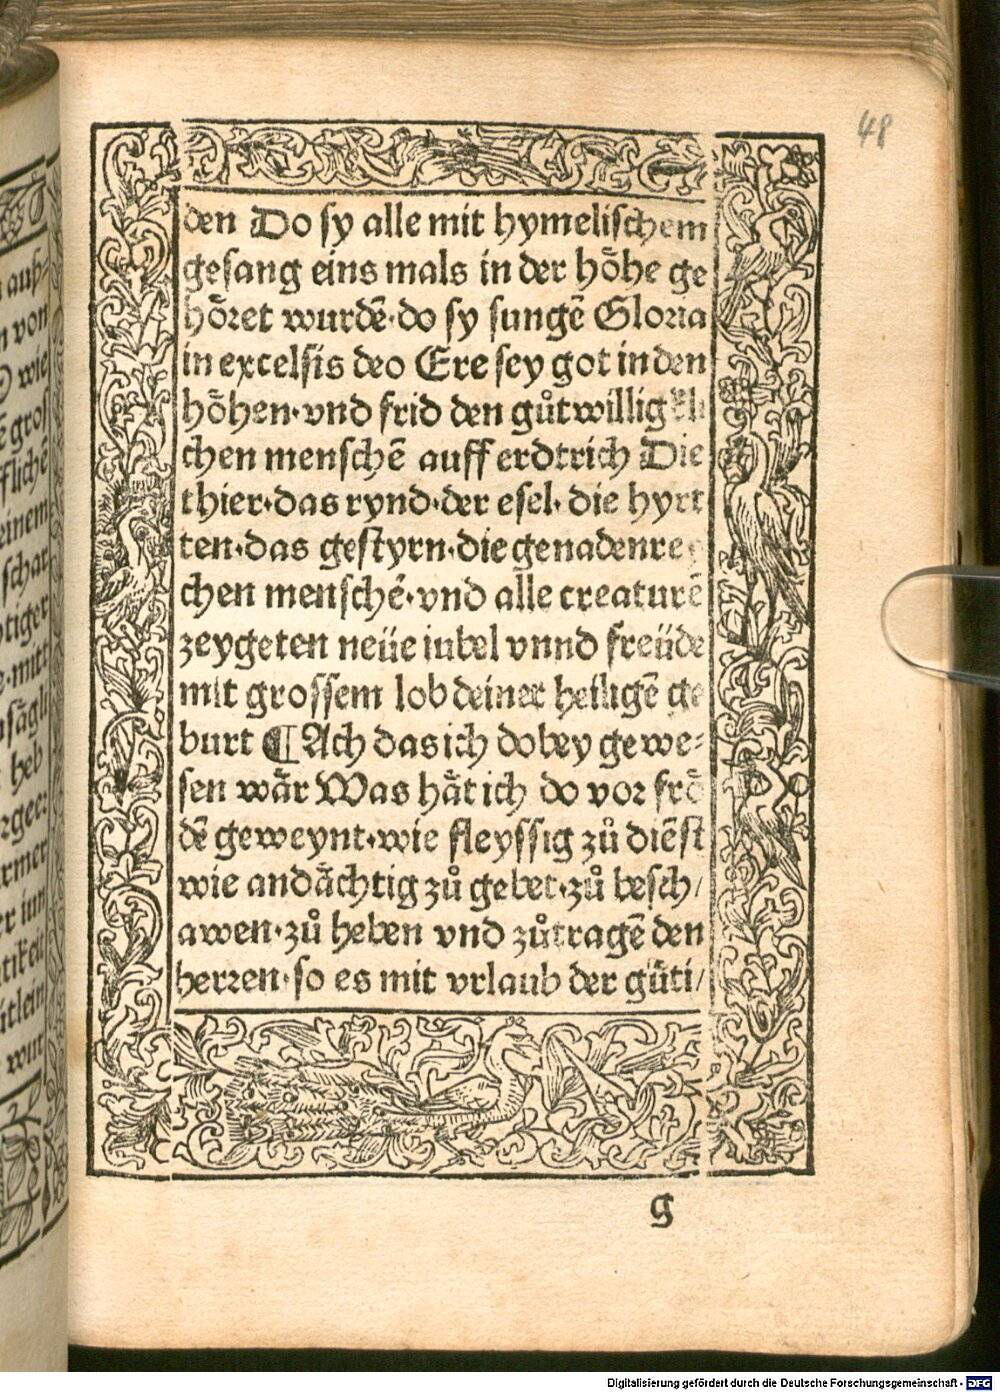 48
den Do sy alle mit hymelischem
gesang eins mals in der hoͤhe ge
hoͤret wurdē·do sy sungē Gloria
in excelsis deo Ere sey got in den
hoͤhen·vnd frid den gůtwillig
chen menschē auff erdtrich Die
thier·das rynd·der esel·die hyrt
ten·das gestyrn·die genadenre
chen menschē·vnd alle creaturē
zeygeten neüe iubel vnnd freüde
mit grossem lob deiner heiligē ge
burt ¶ Ach das ich dobey gewe⸗
sen waͤr Was haͤt ich do vor froͤ
dē geweynt·wie fleyssig zů diēst
wie andaͤchtig zů gebet·zů besch/
awen·zů heben vnd zůtragē den
herren·so es mit vrlaub der guͤti/
g
auß⸗
von
wie
gros
flichē
einem
schar
tiger
mitt
sägli
heb
rgeer
rmer
er iun
tikeit
itlein
wut
Digitalisierung gefördert durch die Deutsche Forschungsgemeinschaft - DFG